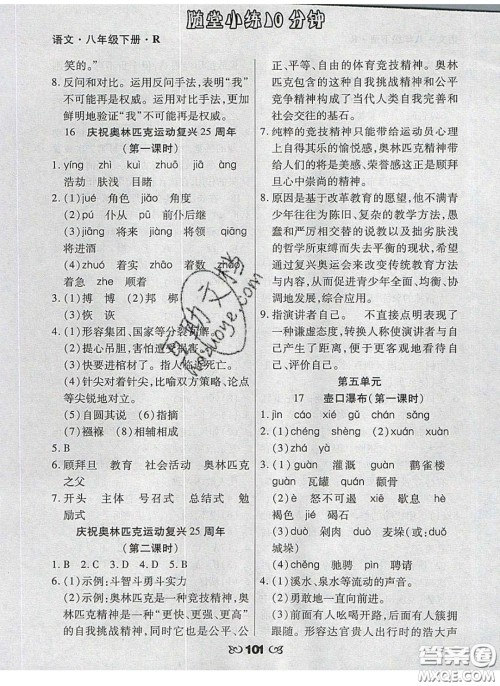 随堂小练10分钟
语文·八年级下册·R
笑的。”
8. 反问和对比。运用反问手法,表明“我”
不可能再是权威。运用对比手法,更加
鲜明地验证“我”不可能再是权威。
16 庆祝奥林匹克运动复兴25周年
(第一课时)
1. yíng zhì kuì zhuō jiǎ àng
浩劫 肤浅 目睹
2. (1)jué 角色 jiǎo 角度
(2)pú 仆从 pū 前仆后继
(3)jiāng 将来 jiàng 将领 qiāng
将进酒
(4)zhuó 着实 zhāo 着数 zháo
着急 zhe 顺着
3. (1)搏 博 (2)邦 梆
(3)恢 诙
4. (1)形容集团、国家等分裂瓦解。
(2)提心吊胆,害怕遭受灾害。
(3)快要进棺材了。指人临近死亡。
(4)针尖对着针尖,比喻双方策略、论点
等尖锐地对立。
(5)自圆其说 (6)指摘
(7)襁褓 (8)相辅相成
5. B
6. 顾拜旦 教育 社会活动 奥林匹克
之父
7. 开头 主体 号召式 总结式 勉
励式
庆祝奥林匹克运动复兴25周年
(第二课时)
1. B 2. C 3. D 4. D 5. B
6. (1)示例:斗智斗勇斗实力
(2)示例:奥林匹克是一种竞技精神,奥
林匹克精神是一种“更快、更强、更高”
的自我挑战精神,同时它也是公平、公
正、平等、自由的体育竞技精神。奥林
匹克包含的这种自我挑战精神和公平
竞争精神构成了当代人类自我完善和
社会交往的基石。
7. 纯粹的竞技精神只能带给运动员心理
上自我的愉悦感,奥林匹克竞技精神带
给人们的将是美感、荣誉感这正是顾拜
旦心中崇尚的精神。
8. 原因是基于改革教育的愿望,他不满青
少年往往为陈旧、复杂的教学方法,愚
蠢和严厉相交替的说教以及拙劣肤浅
的哲学所束缚而失去平衡的现状,希望
通过复兴奥运会来改变传统教育方法
与内容,从而促进青少年全面、均衡、协
调地发展,综合应用。
9. 指演讲者自己。 不直接点明表现了
一种谦虚态度,转换人称使演讲者与自
己产生了距离,便于更客观地看待自
己、评价自己。
第五单元
17 壶口瀑布(第一课时)
1. jìn cáo xié gǔ chán sǎng
2. (1)chéng shèng (2)xuán xuàn
(3)yì ài
3. (1)guàn 灌溉 guàn 鹳雀楼
guàn 瓦罐 quán 颧骨
(2)è 怒不可遏 xiē 歇息 hè
褐色 jié 碣石
(3)duò 剁肉 duò 麦垛(或:duǒ
城垛)
(4)chěng 驰骋 pìn 聘请
4. (1)溪水、泉水等流动的声音。
(2)勇敢地一直向前进。
(3)前面有人吆喝开路,后面有人簇拥
跟随。形容达官贵人出行时的浩大声
101
答案圈
MXQE.COM